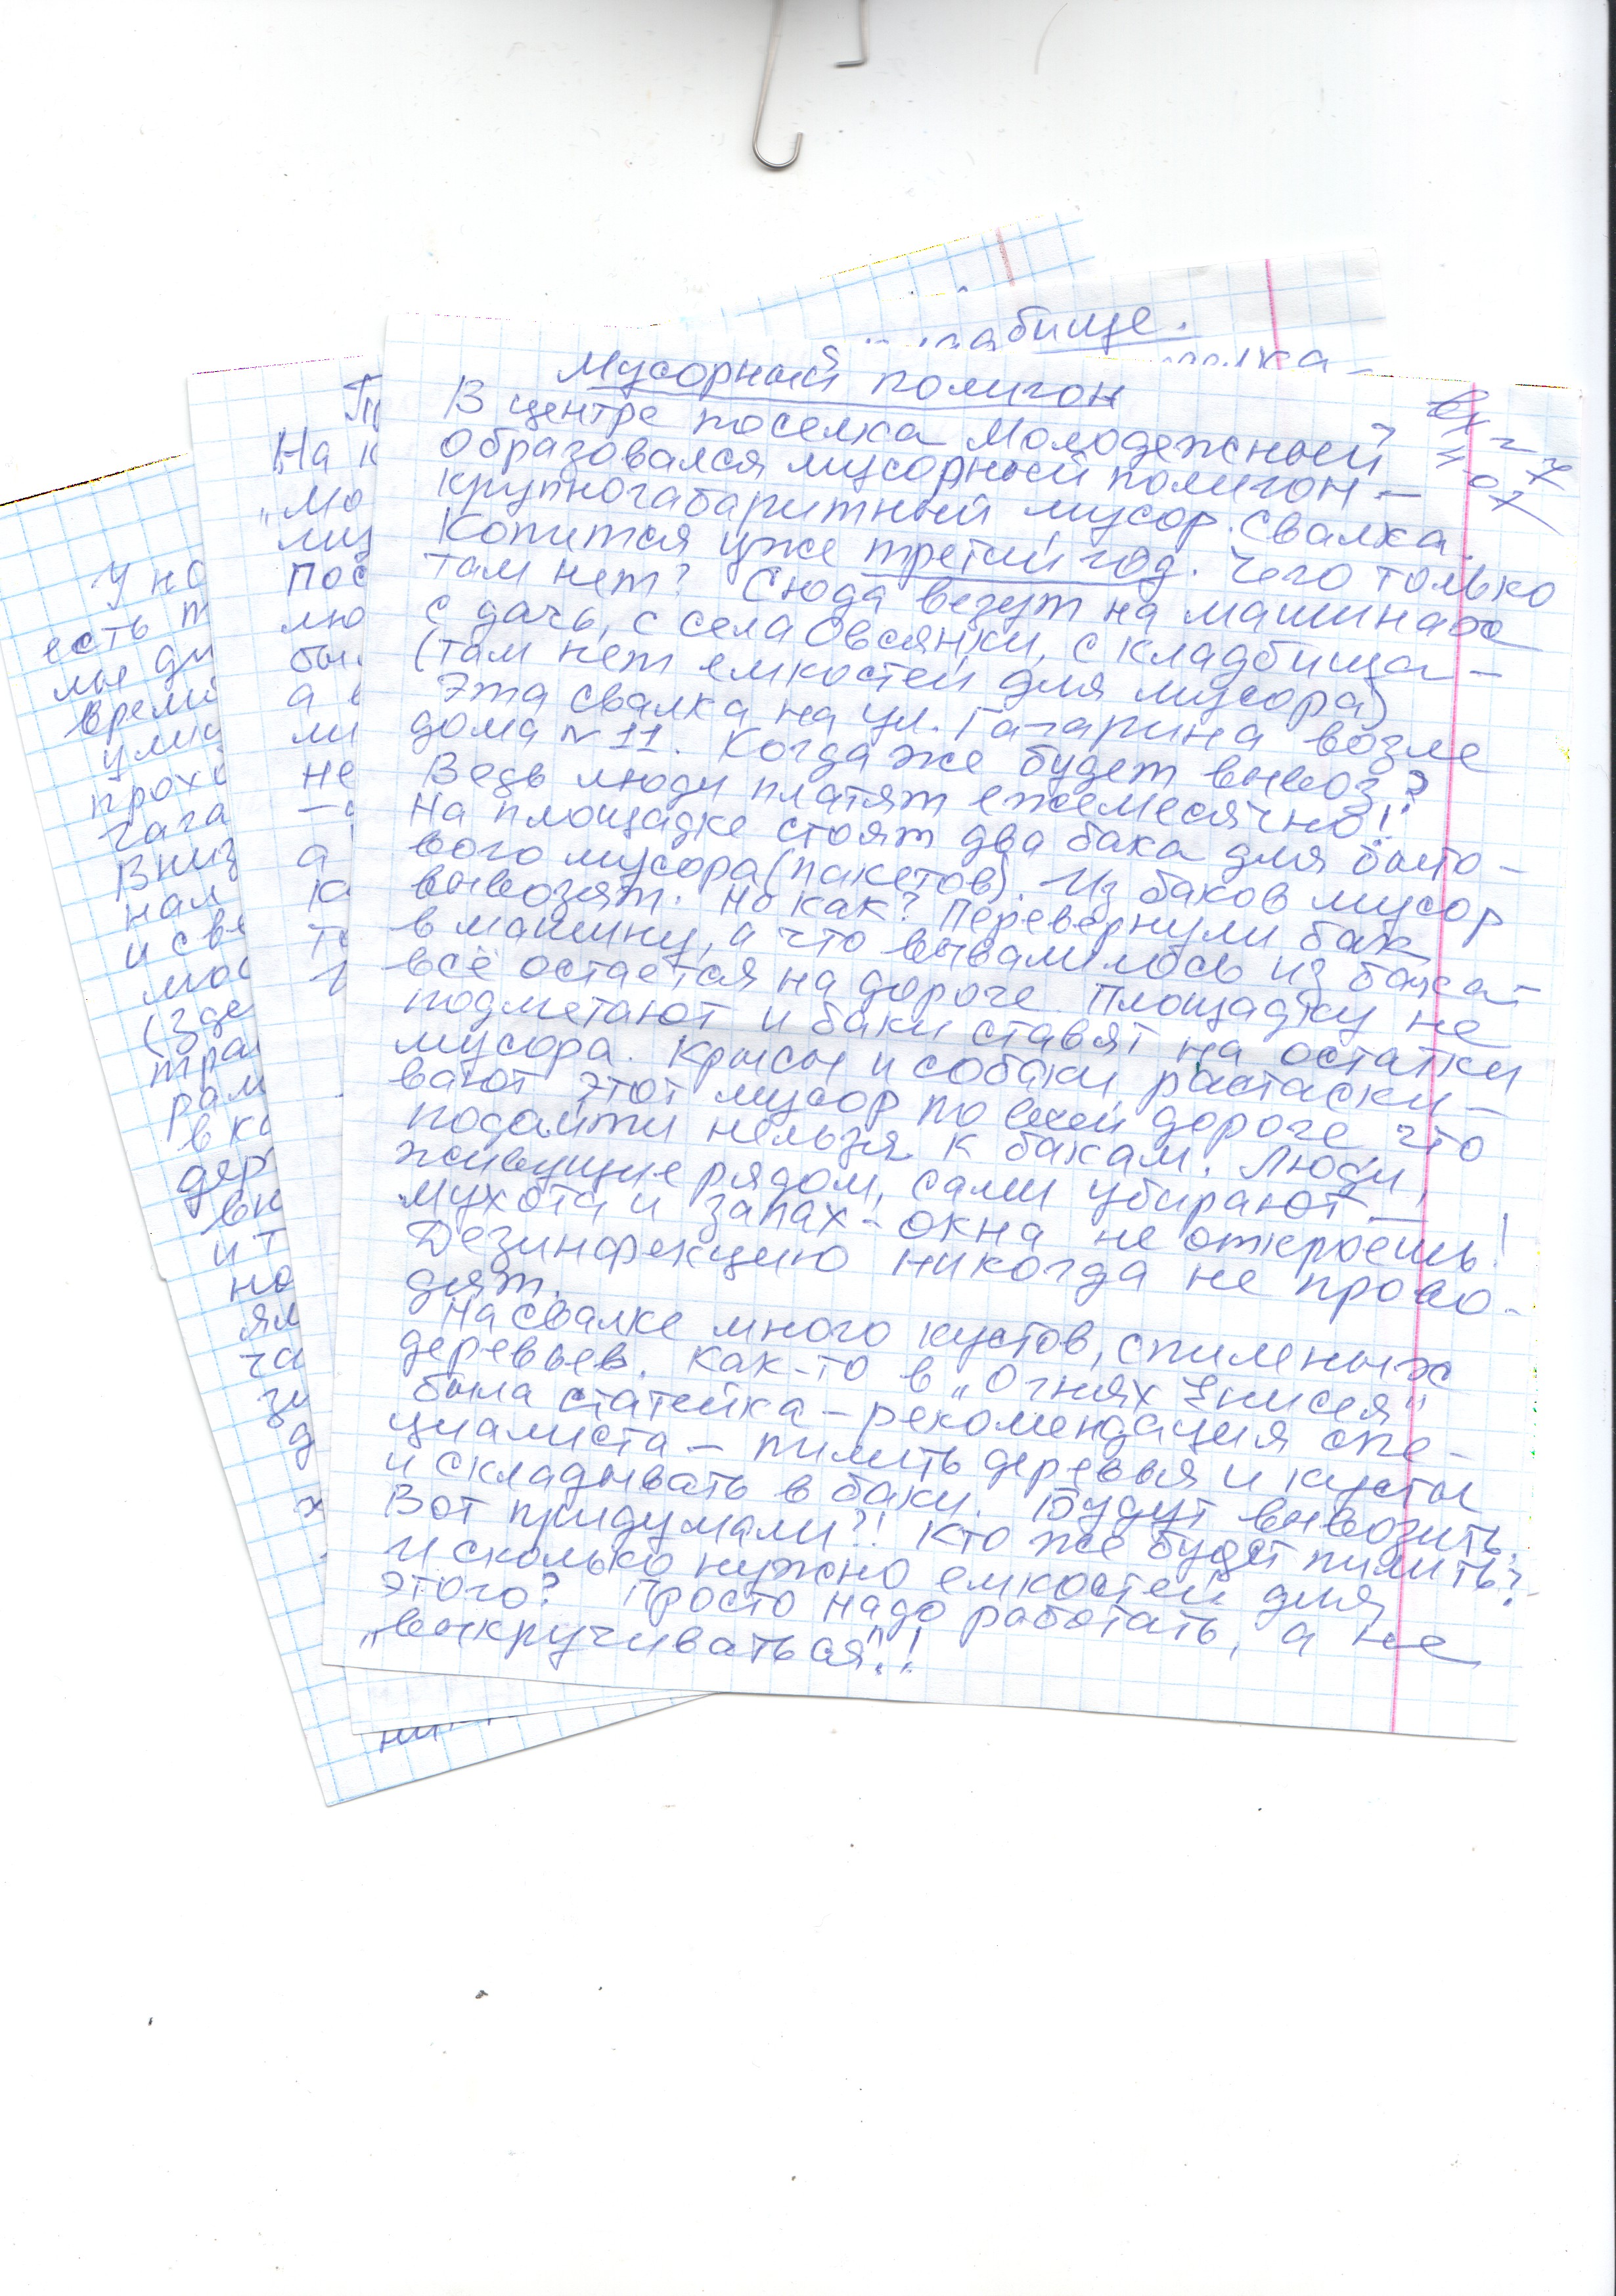 бище.
Мусорный полигон
В центре поселка Молодежный
образовался мусорный полигон –
крупногабаритный мусор. Свалка.
Копится уже третий год. Чего только
там нет? Сюда везут на машинах
с дач, с села Овсянки, с кладбища –
(там нет емкостей для мусора)
Эта свалка на ул. Гагарина возле
дома № 11. Когда же будет вывоз?
Ведь люди платят ежемесячно!
На площадке стоят два бака для быто-
вого мусора (пакетов). Из баков мусор
вывозят. Но как? Перевернули бак
в машину, а что вывалилось из бака –
всё остается на дороге. Площадку не
подметают и баки ставят на остатки
мусора. Крысы и собаки растаски-
вают этот мусор по всей дороге что
подойти нельзя к бакам. Люди,
живущие рядом, сами убирают –
мухота и запах – окна не откроешь!
Дезинфекцию никогда не прово-
дят.
На свалке много кустов, спиленых
деревьев. Как-то в „Огнях Енисея"
была статейка – рекомендация спе-
циалиста – пилить деревья и кусты
и складывать в баки. Будут вывозить.
Вот придумали?! Кто же будет пилить?
И сколько нужно емкостей для
этого? Просто надо работать, а не
„выкручиваться"!
У но
есть т
лые ди
време
улиц
прохо
гага
Вниз
нал
и све
мос
(Зде
тра
рам
в ко
дер
вн
и т
но
ям
ча
зи
д
На к
„Мо
муз
Пос
лю
бы
а в
ли
не
а
ю
т